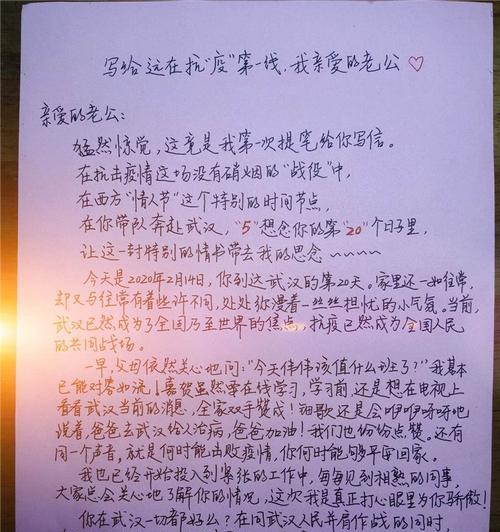 写给远在抗“疫”第一线，我亲爱的老公♡
亲爱的老公：
猛然惊觉，这竟是我第一次提笔给你写信。
在抗击疫情这场没有硝烟的“战役”中，
在西方“情人节”这个特别的时间节点，
在你带队奔赴武汉，“5”想念你的第“20”个日子里，
让这一封特别的情书带去我的思念～～～～
今天是2020年2月14日，你到达武汉的第20天。家里还一如往常，
却又与往常有着些许不同，处处弥漫着一丝丝担忧的小气氛。当前，
武汉已然成为了全国乃至世界的焦点，抗疫已然成为全国人民
的共同战场。
一早，父母依然关心地问：“今天伟伟该值什么班了？”我基本
已能对答如流！嘉贺虽然要在线学习，学习前，还是想在电视上
看看武汉当前的消息，全家双手赞成！翔歌还是会咿咿呀呀地
说着，爸爸去武汉给人治病，爸爸加油！我们也纷纷点赞。还有
同一个声音，就是何时能击败疫情，你何时能够平安回家。
我也已经开始投入到紧张的工作中，每每见到相熟的同事，
大家总会关心地了解你的情况，这次我是真正打心眼里为你骄傲！
你在武汉一切都好么？在同武汉人民并肩作战的同时，